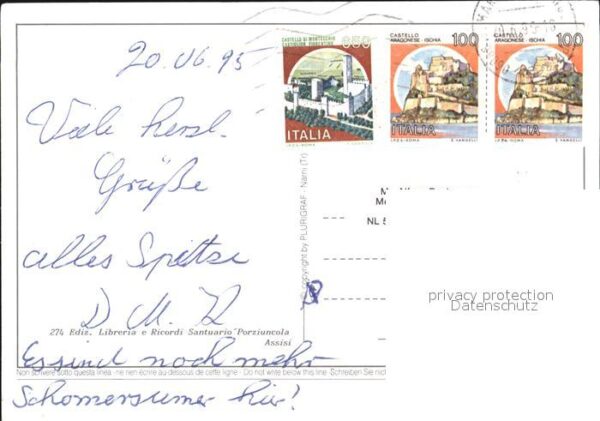 20.06.95
Viele herzl.
Grüße
alles Spitze
D M
274 Ediz. Libreria e Ricordi Santuario "Porziancola
Assisi
Es sind noch mehr
Non scrivere sotto questa linea - ne rien écrire au-dessous de cette ligne - Do not write below this line - Schreiben Sie nicht
hier!
© copyright by PLURIGRAF - Narni (Tr)
CASTELLO DI MONTECCHIO
CASTIGLION FIORENTINO
650
ITALIA
I.P.Z.S.-ROMA
E. VANGELLI
CASTELLO
ARAGONESE - ISCHIA
100
ITALIA
I.P.Z.S.-ROMA
E. VANGELLI
CASTELLO
ARAGONESE - ISCHIA
100
ITALIA
I.P.Z.S.-ROMA
E. VANGELLI
NL 5
privacy protection
Datenschutz